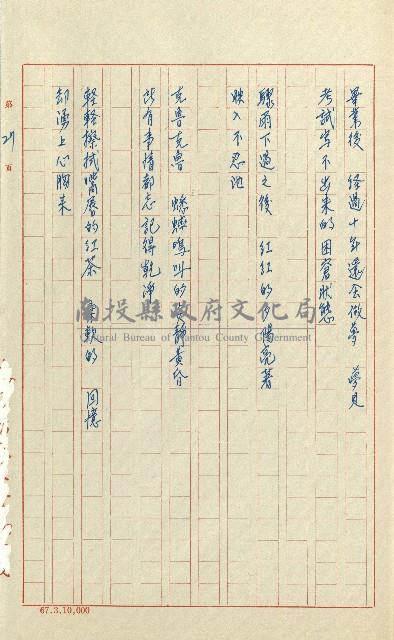 畢業後 經過十年還會做夢 夢見
考試寫不出來的困窘狀態
驟雨下過之後 紅紅的夕陽亮著
映入不忍池
克魯克魯 蟋蟀鳴叫的 靜黃昏
所有事情都忘記得乾淨
輕輕擦拭嘴唇的紅茶 軟的 回憶
却湧上心胸來
第 21 頁
南投縣政府文化局
Cultural Bureau of Nantou County Government
67.3.10,000